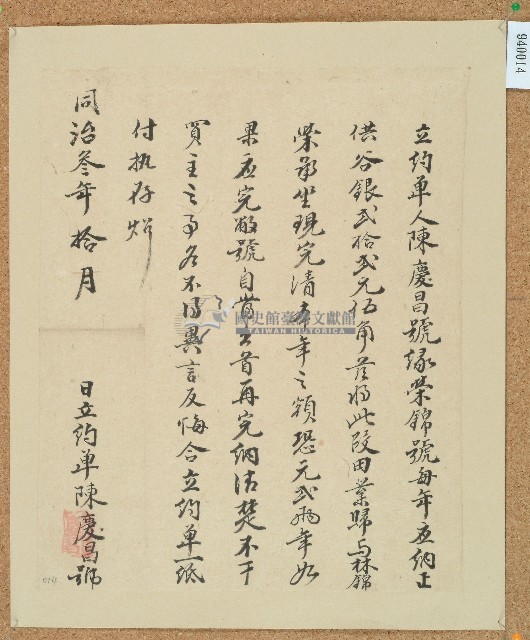 立約單人陳慶昌號緣榮錦號每年应納正
供谷銀弍拾弍元伍角茲將此段田業歸与林錦
榮承坐現完清本年之額恐元弍両年如
果应完敝號自當公首再完納清楚不干
買主之事各不得異言反悔合立約單一紙
付执存炤
同治叁年拾月
日立約单陳慶昌號
國史館臺灣文獻館
TAIWAN HISTORICA
940014